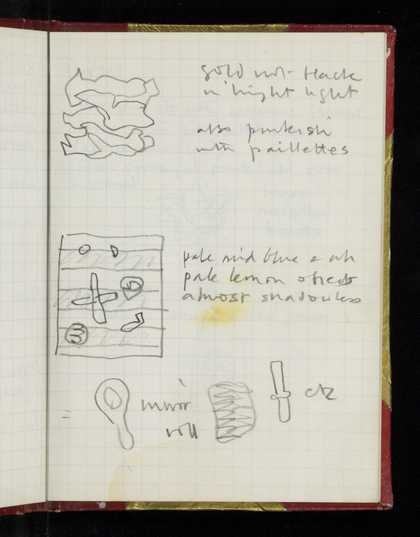 gold not black
in bright light
also pinkish
with paillettes
pale mid blue
pale lemon
almost shadowless
mirror
roll
etc